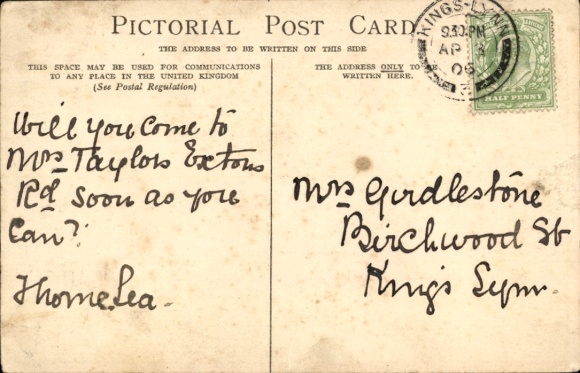 PICTORIAL POST CARD
THE ADDRESS TO BE WRITTEN ON THIS SIDE
THIS SPACE MAY BE USED FOR COMMUNICATIONS
TO ANY PLACE IN THE UNITED KINGDOM
(See Postal Regulation)
THE ADDRESS ONLY TO BE
WRITTEN HERE.
KINGS-LYNN
9.30.PM
AP
06
HALF PENNY
Will you come to
Mrs Taylors Extons
Rd soon as you
can?
Mrs Girdlestone
Birchwood St
King's Lynn.